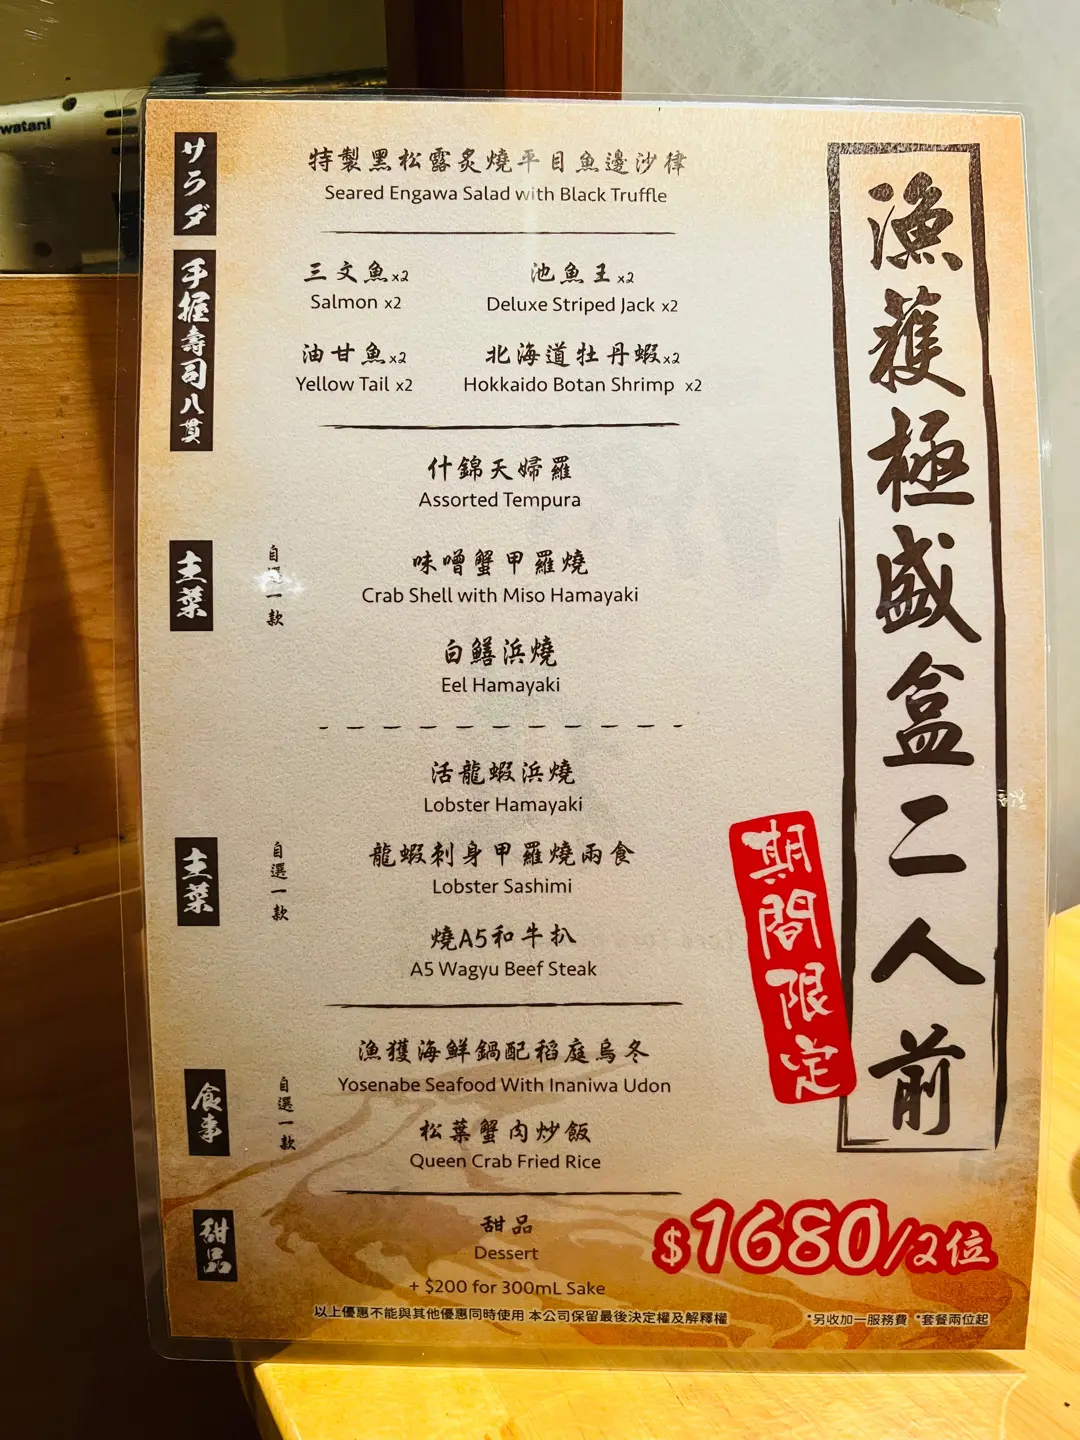 watani
サラダ
特製黑松露炙燒平目魚邊沙律
Seared Engawa Salad with Black Truffle
手握壽司八貫
三文魚x2
Salmon x2
池魚王x2
Deluxe Striped Jack x2
油甘魚x2
Yellow Tail x2
北海道牡丹蝦x2
Hokkaido Botan Shrimp x2
什錦天婦羅
Assorted Tempura
主菜
自選一款
味噌蟹甲羅燒
Crab Shell with Miso Hamayaki
白鱔浜燒
Eel Hamayaki
活龍蝦浜燒
Lobster Hamayaki
主菜
自選一款
龍蝦刺身甲羅燒兩食
Lobster Sashimi
燒A5和牛扒
A5 Wagyu Beef Steak
食事
自選一款
漁獲海鮮鍋配稻庭烏冬
Yosenabe Seafood With Inaniwa Udon
松葉蟹肉炒飯
Queen Crab Fried Rice
甜品
甜品
Dessert
+ $200 for 300mL Sake
以上優惠不能與其他優惠同時使用 本公司保留最後決定權及解釋權
漁獲極盛盒二人前
期間限定
$1680/2位
*另收加一服務費 *套餐兩位起